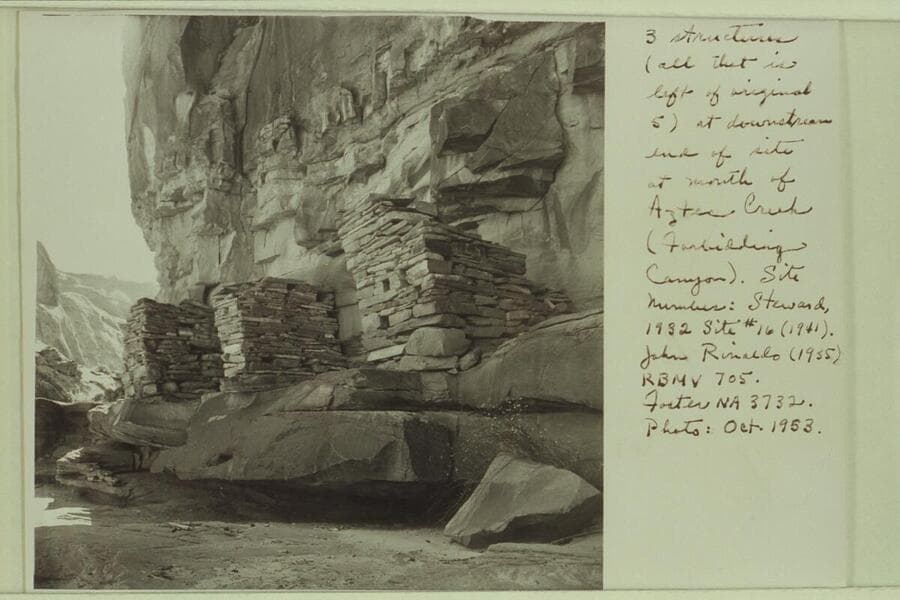 3 structures
(all that is
left of original
5) at downstream
end of site
at mouth of
Aztec Creek
(Forbidding
Canyon). Site
Number: Steward,
1932 Site #16 (1941).
John Rinaldo (1955)
RBMV 705.
Foster NA 3732.
Photo: Oct. 1953.